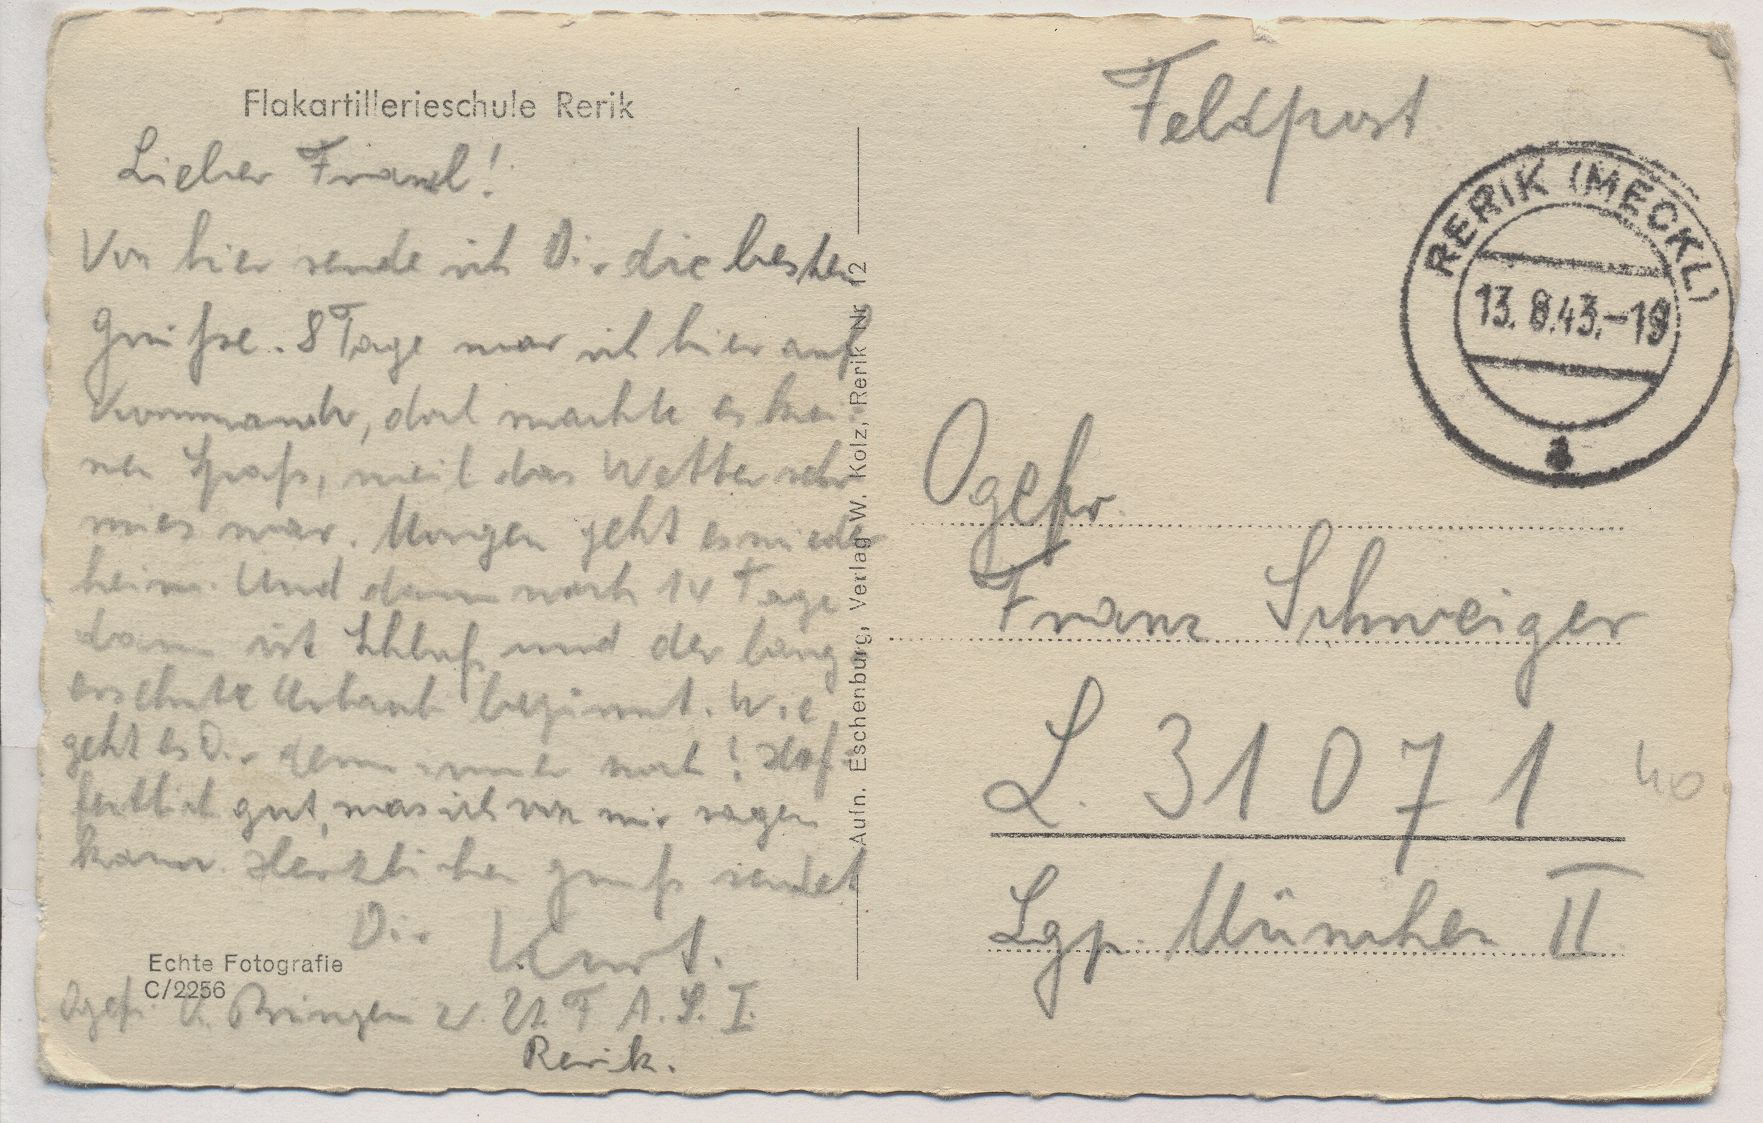 Flakartillerieschule Rerik
Lieber Franzl!
Von hier sende ich Dir die besten
Grüße. 8 Tage war ich hier auf
Kommando, dort machte es kei-
nen Spaß, weil das Wetter sehr
mies war. Morgen geht es wieder
heim. Und dann noch 14 Tage
dann ist Schluß und der lang
ersehnte Urlaub beginnt. Wie
geht es Dir denn immer noch! Hof-
fentlich gut, was ich von mir sagen
kann. Herzlichen Gruß sendet
Dir Kurt.
Echte Fotografie
C/2256
Ogefr. K. F.A.S. I.
Rerik.
Aufn. Eschenburg, Verlag W. Kolz, Rerik Nr. 12
Feldpost
RERIK (MECKL)
13.8.43.-19
a
Ogefr.
Franz Schweiger
L 31071
40
Lgp. München II